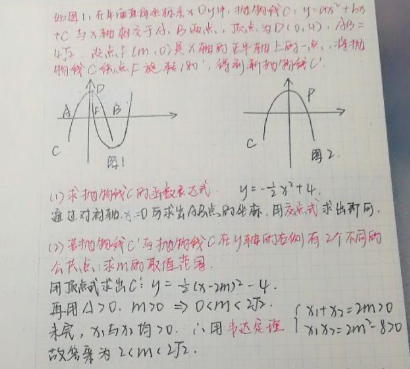 如图1,在平面直角坐标系xOy中,抛物线C:y=ax²+bx
+C与x轴相交于A,B两点,顶点为D(0,4),AB=
4√2 点F(m,0)是x轴的正半轴上的一点,将抛
物线C绕点F旋转180°,得到新抛物线C'.
D
A
F
B
C
图1
P
C
图2.
(1)求抛物线C的函数表达式. y=-½x²+4.
通过对称轴x=0求出AB点的坐标.用交点式求出即可.
(2)若抛物线C'与抛物线C在y轴的右侧有2个不同的
公共点,求m的取值范围.
用顶点式求出C': y=½(x-2m)²-4.
再用△>0. m>0 ⇒ 0<m<2√2.
未完,x₁与x₂均>0. ∴用韦达定理
x₁+x₂=2m>0
x₁x₂=2m²-8>0
故答案为2<m<2√2.